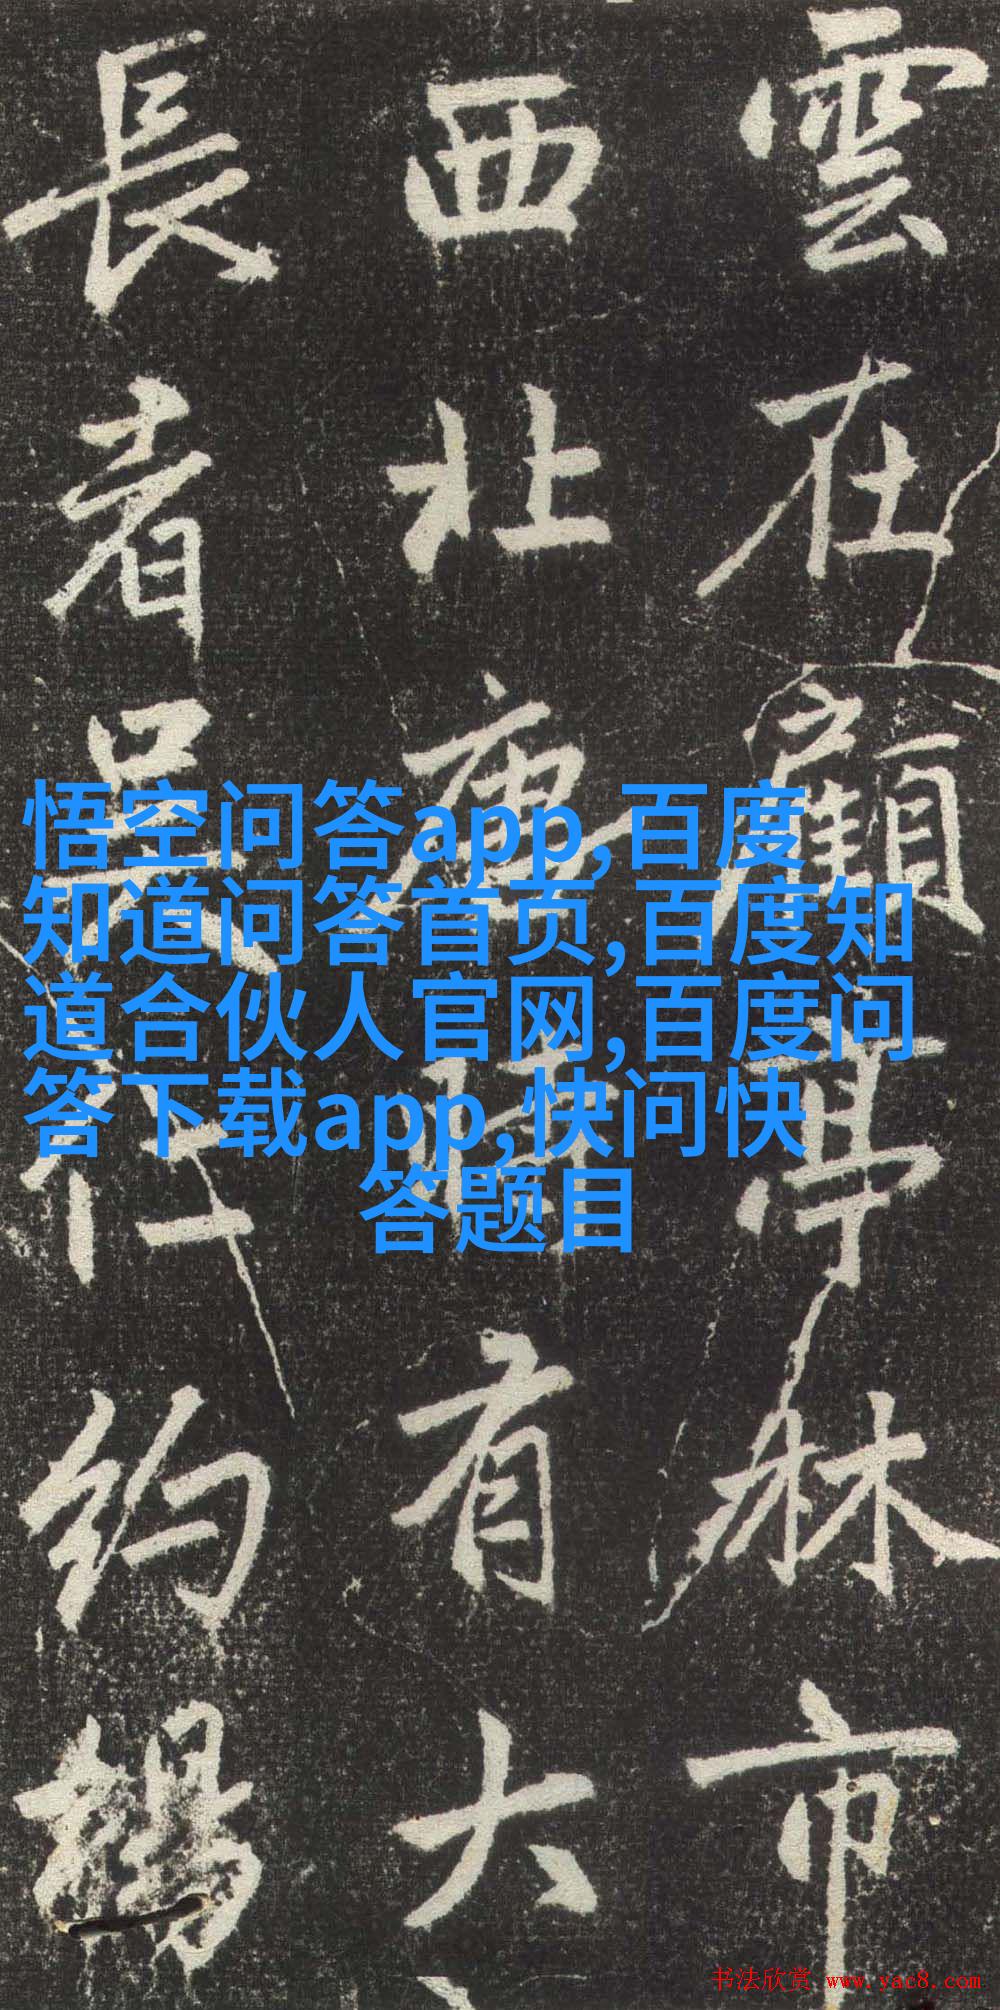 雲在顧亭林市
西北有大
長者吳約楊
悟空问答app,百度
知道问答首页,百度知
道合伙人官网,百度问
答下载app,快问快
答题目
书法欣赏 www.yac8.com